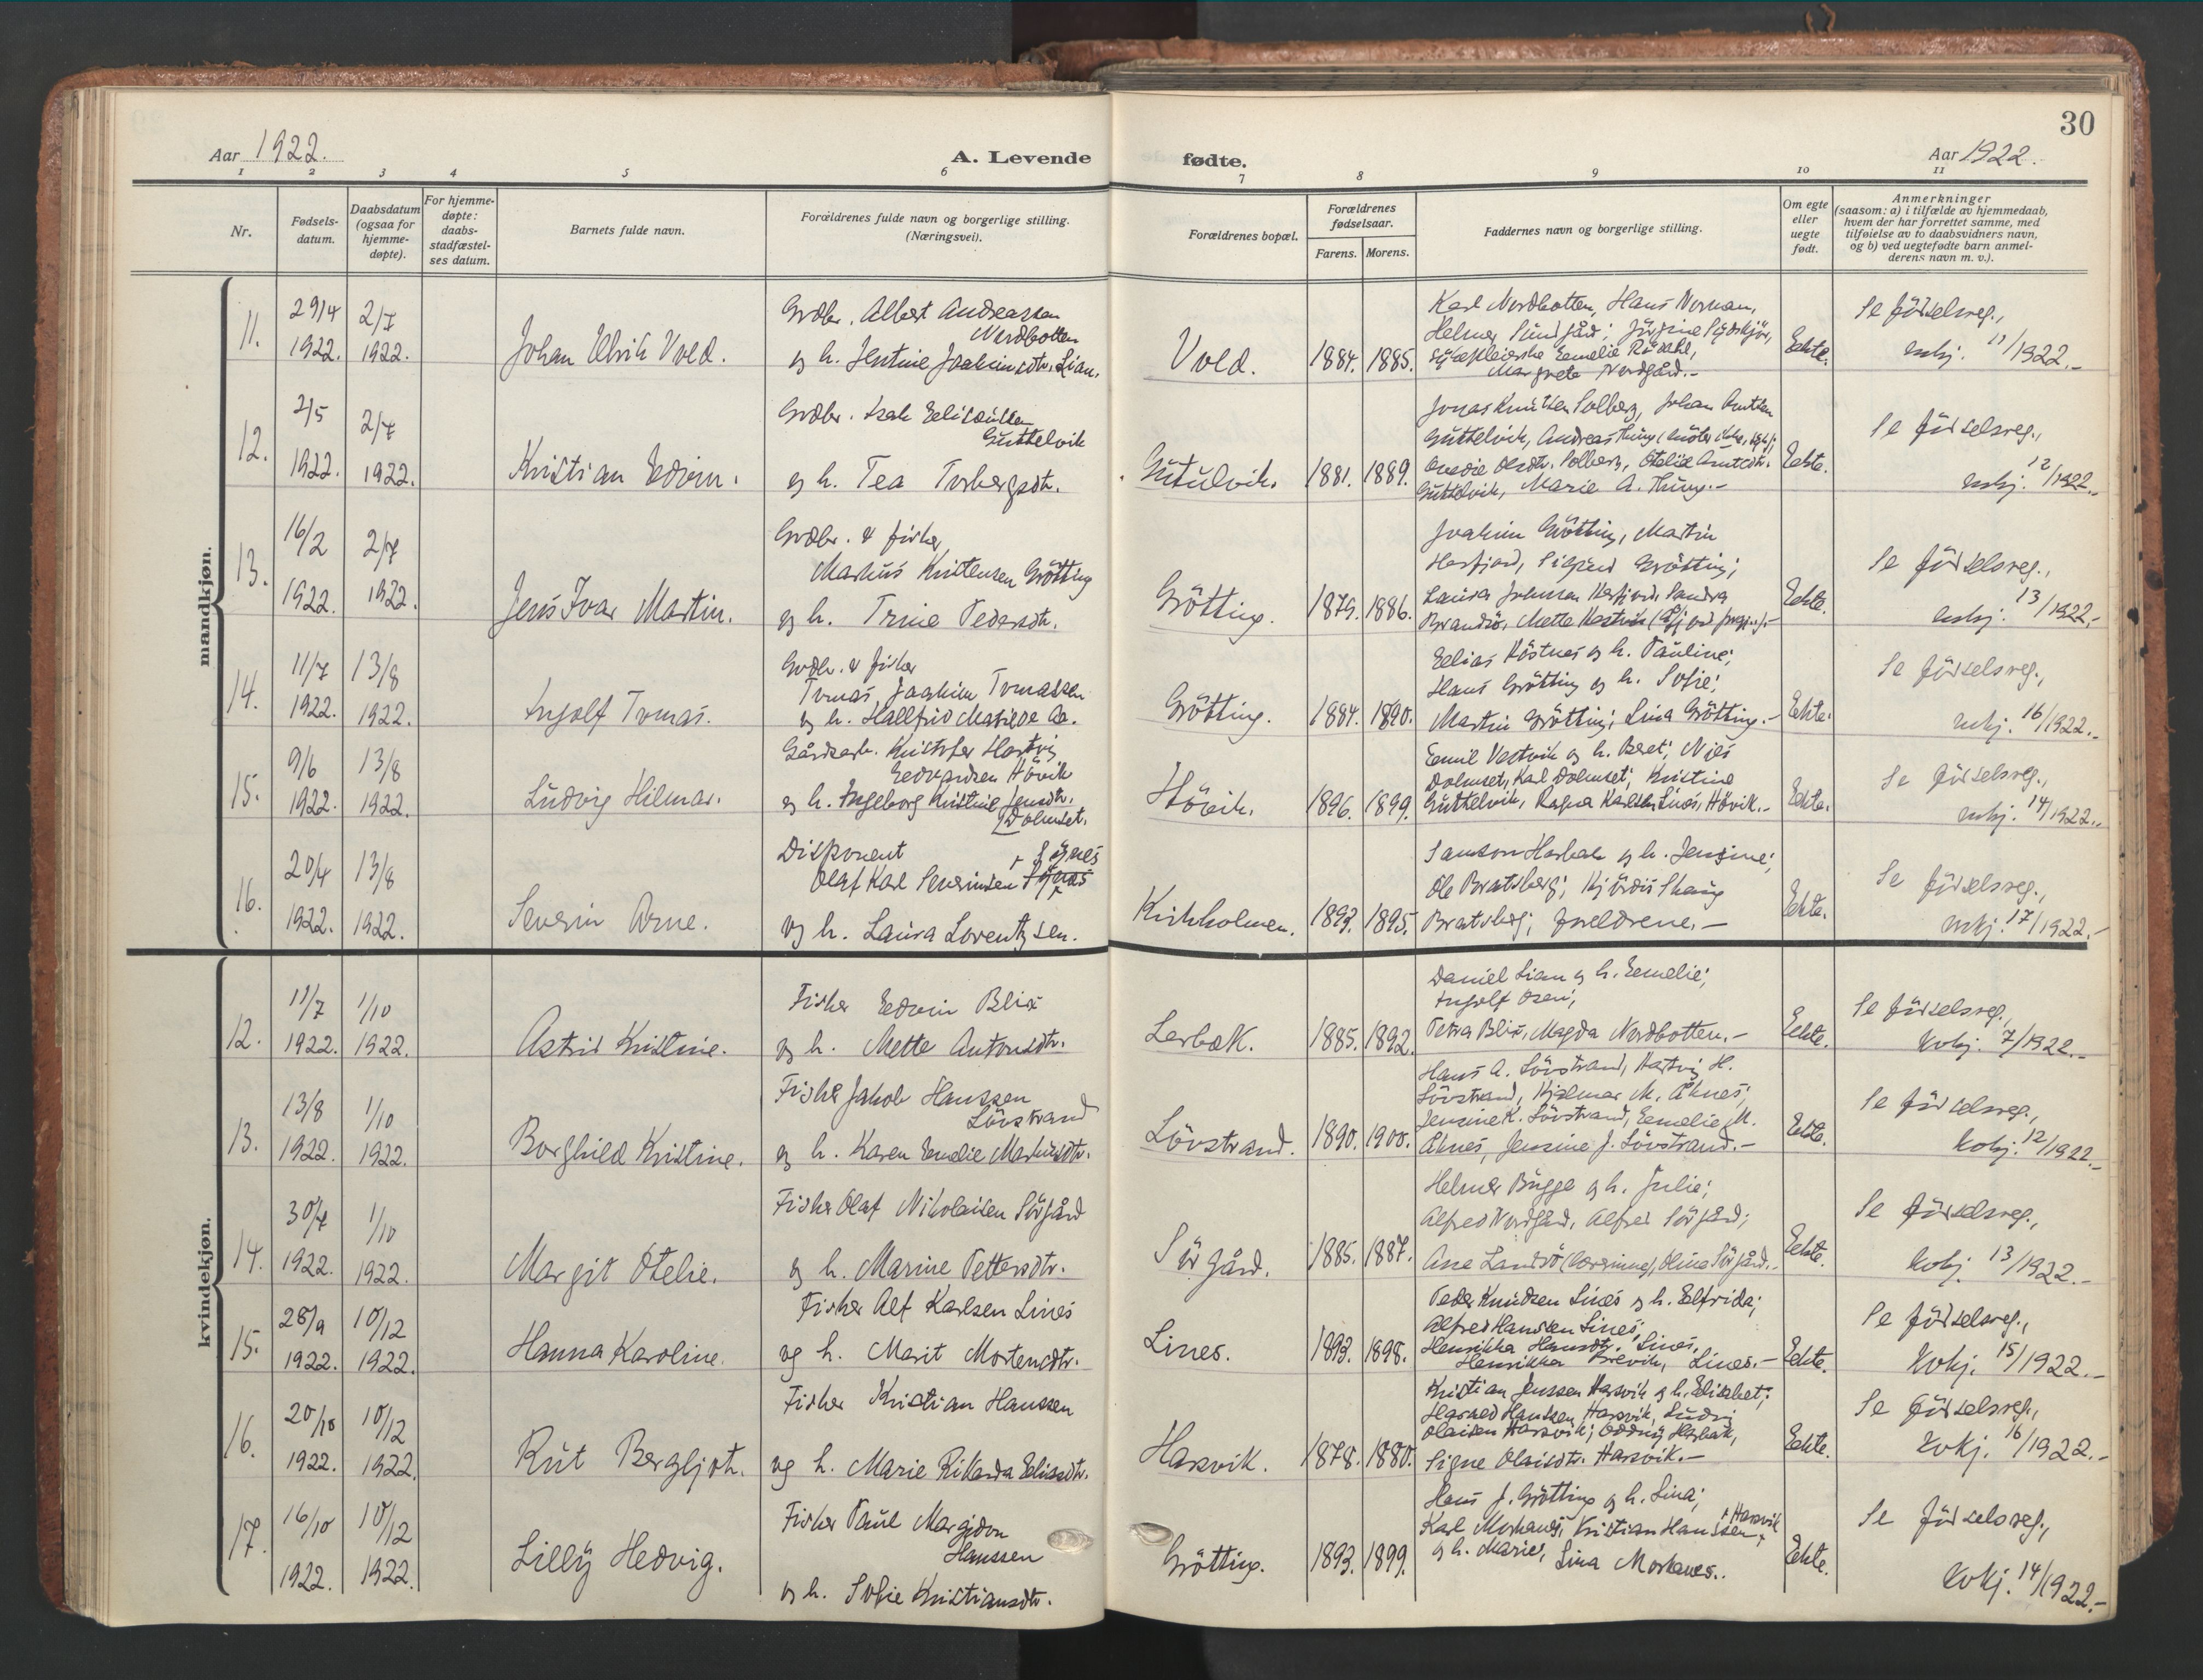 30
Aar 1922.
A. Levende
fødte.
Aar 1922.
1 2 3 4 5 6 7 8 9 10 11
Nr.
Fødsels-
datum.
Daabsdatum
(ogsaa for
hjemme-
døpte).
For hjemme-
døpte:
daabs-
stadfæstel-
ses datum.
Barnets fulde navn.
Forældrenes fulde navn og borgerlige stilling.
(Næringsvei).
Forældrenes bopæl.
Forældrenes
fødselsaar.
Farens. Morens.
Faddernes navn og borgerlige stilling.
Om egte
eller
uegte
født.
Anmerkninger
(saasom: a) i tilfælde av hjemmedaab,
hvem der har forrettet samme, med
tilføielse av to daabsvidners navn,
og b) ved uegtefødte barn anmel-
derens navn m. v.).
mandkjøn.
11.
29/4
1922.
2/7
1922.
Johan Ulrik Vold.
Grdbr. Albert Andreassen
Nordbotten
og h. Jentine Joakimsdtr. Lian.
Vold.
1884. 1885.
Karl Nordbotten, Hans Norman,
Helmer Sundgård;
Emelie
Margrete Nordgård.-
Ekte.
Se födselsreg.,
mkj. 11/1922.-
12.
2/5
1922.
2/7
1922.
Kristian Edvin.
Grdbr. Isak
Guttelvik
og h. Tea Torbergsdtr.
Gutulvik.
1881. 1889.
Jonas Knutsen Solberg, Johan
Guttelvik, Andreas
Olsdtr. Solberg, Otelie
Guttelvik, Marie A.
Ekte.
Se födselsreg.,
mkj. 12/1922.-
13.
16/2
1922.
2/7
1922.
Jens Ivar Martin.
Grdbr. & fisker
Markus Kristensen Grötting
og h. Trine Pedersdtr.
Grötting.
1879. 1886.
Joakim Grötting, Martin
Harfjord, Sigurd Grötting;
Laura Johnsen Sandra
Brandsö, Mette
Ekte.
Se födselsreg.,
mkj. 13/1922.-
14.
11/7
1922.
13/8
1922.
Ingolf Tomas.
Grdbr. & fisker
Tomas Joakim Tomassen
og h. Hallfrid Matilde Aa.
Grötting.
1884. 1890.
Elias og h. Pauline;
Hans Grötting og h. Sofie;
Martin Grötting; Lina Grötting.-
Ekte.
Se födselsreg.,
mkj. 16/1922.-
15.
9/6
1922.
13/8
1922.
Ludvig Hilmar.
Gårdsarb. Kristofer Hartvig
Edvardsen Hövik
og h. Ingeborg Kristine Jensdtr.
Dolmset.
Hövik.
1896. 1899.
Emil Vestvik og h. Beret; Nils
Dolmset, Karl Dolmset; Kristine
Guttelvik, Ragna Karlsen Lines, Hövik.-
Ekte.
Se födselsreg.,
mkj. 14/1922.-
16.
20/4
1922.
13/8
1922.
Severin Arne.
Disponent
Olaf Karl Severinsen
og h. Laura Lorentzen.
Kirkholmen.
1893. 1895.
Samson Harbak og h. Jensine;
Ole Bratsberg; Hjördis Skaug
Bratsberg; foreldrene.-
Ekte.
Se födselsreg.,
mkj. 17/1922.-
kvindekjøn.
12.
11/7
1922.
1/10
1922.
Astrid Kristine.
Fisker Edvin Blix
og h. Mette Antonsdtr.
Lerbæk.
1885. 1892.
Daniel Lian og h. Emelie;
Ingolf Osen;
Petra Blix, Magda Nordbotten.-
Ekte.
Se födselsreg.,
kvkj. 7/1922.-
13.
13/8
1922.
1/10
1922.
Borghild Kristine.
Fisker Jakob Hanssen
Lövstrand
og h. Karen Emelie Markusdtr.
Lövstrand.
1890. 1900.
Hans A. Lövstrand, Hartvig H.
Lövstrand, Hjalmar M. Aknes;
Jensine K. Lövstrand, Emelie M.
Aknes, Jensine J. Lövstrand.-
Ekte.
Se födselsreg.,
kvkj. 12/1922.-
14.
30/7
1922.
1/10
1922.
Margit Otelie.
Fisker Olaf Nikolaisen Sörgård
og h. Marine Pettersdtr.
Sörgård.
1885. 1887.
Helmer Bugge og h. Julie;
Alfred Nordgård, Alfred Sörgård;
Ane Landsö (lærerinne), Olina Sörgård.-
Ekte.
Se födselsreg.,
kvkj. 13/1922.-
15.
28/9
1922.
10/12
1922.
Hanna Karoline.
Fisker Alf Karlsen Lines
og h. Marit Mortensdtr.
Lines.
1893. 1898.
Peder Knudsen Lines og h. Elfrida;
Alfred Hanssen Lines,
Henrikka Hansdtr. Lines,
Henrikka Brevik, Lines.-
Ekte.
Se födselsreg.,
kvkj. 15/1922.-
16.
20/10
1922.
10/12
1922.
Rut Bergljot.
Fisker Kristian Hanssen
og h. Marie Rikarda Eliasdtr.
Harsvik.
1878. 1880.
Kristian Jenssen Harsvik og h. Elisabet;
Harald Hanssen Harsvik, Ludvig
Olaisen Harsvik; Oddny Harbak,
Signe Olaisdtr. Harsvik.-
Ekte.
Se födselsreg.,
kvkj. 16/1922.-
17.
16/10
1922.
10/12
1922.
Lilly Hedvig.
Fisker Paul Margidon
Hanssen
og h. Sofie Kristiansdtr.
Grötting.
1893. 1899.
Hans J. Grötting og h. Lina;
Karl Kristian Hanssen Harsvik
og h. Marie; Lina
Ekte.
Se födselsreg.,
kvkj. 14/1922.-